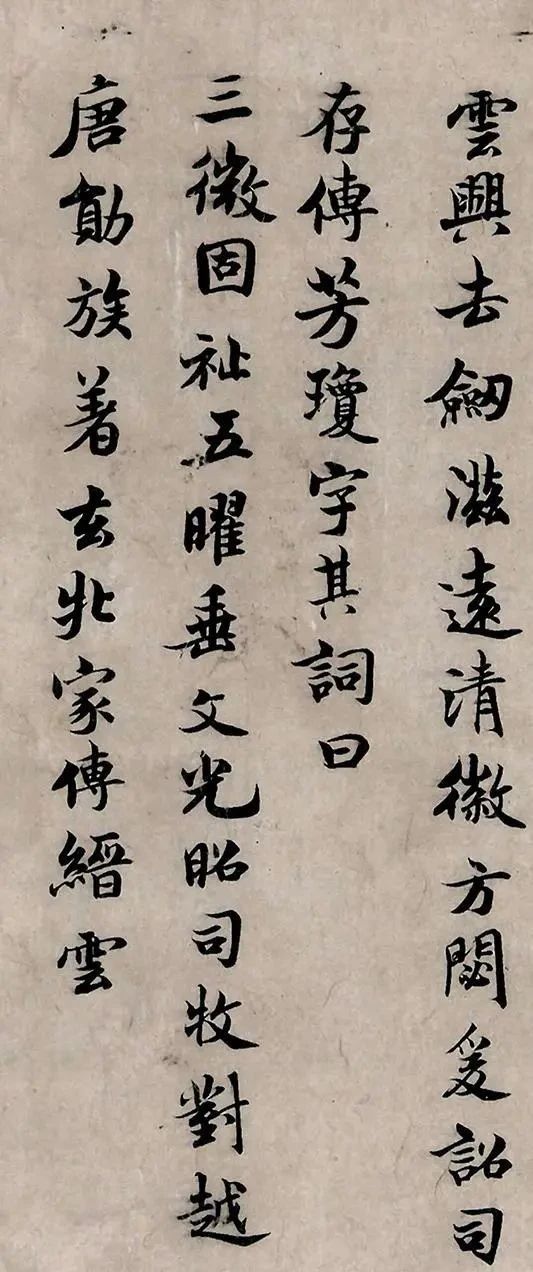 雲興去劔滋遠清徽方閟爰詔司
存傳芳瓊字其詞曰
三微固祉五曜垂文光昭司牧對越
唐勛族著玄北家傳縉雲